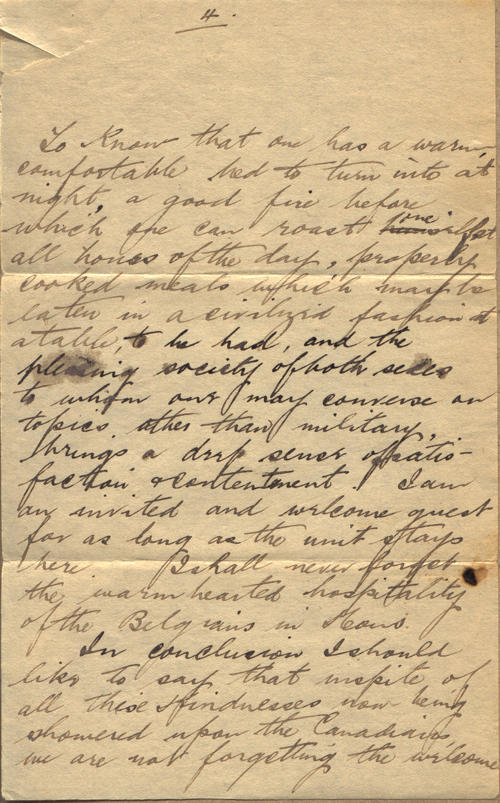 4.
To Know that one has a warm
comfortable bed to turn into at
night, a good fire before
which one can roast one's feet
all hours of the day, properly
cooked meals which may be
eaten in a civilized fashion at
a table, to be had, and the
pleasing society of both sexes
to whom one may converse on
topics other than military,
brings a deep sense of satis-
faction & contentment. I am
an invited and welcome guest
for as long as the unit stays
here I shall never forget
the warm hearted hospitality
of the Belgians in Mons.
In conclusion I should
like to say that inspite of
all these kindnesses now being
showered upon the Canadians,
we are not forgetting the welcome